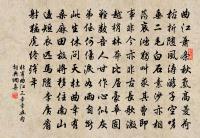 曲江蕭條秋氣高菱荷
枯折隨風濤遊子空嗟
垂二毛白石素沙亦相
蕩哀鴻獨叫求其曹即
事非今亦非古長歌激
越梢林莽比屋豪華固
難數吾人甘作心似灰
弟侄何傷淚如雨自斷
此生休問天杜曲幸有
桑麻田故將移住南山
邊短衣匹馬隨李廣看
射猛虎終殘年
杜甫曲江三章章五句